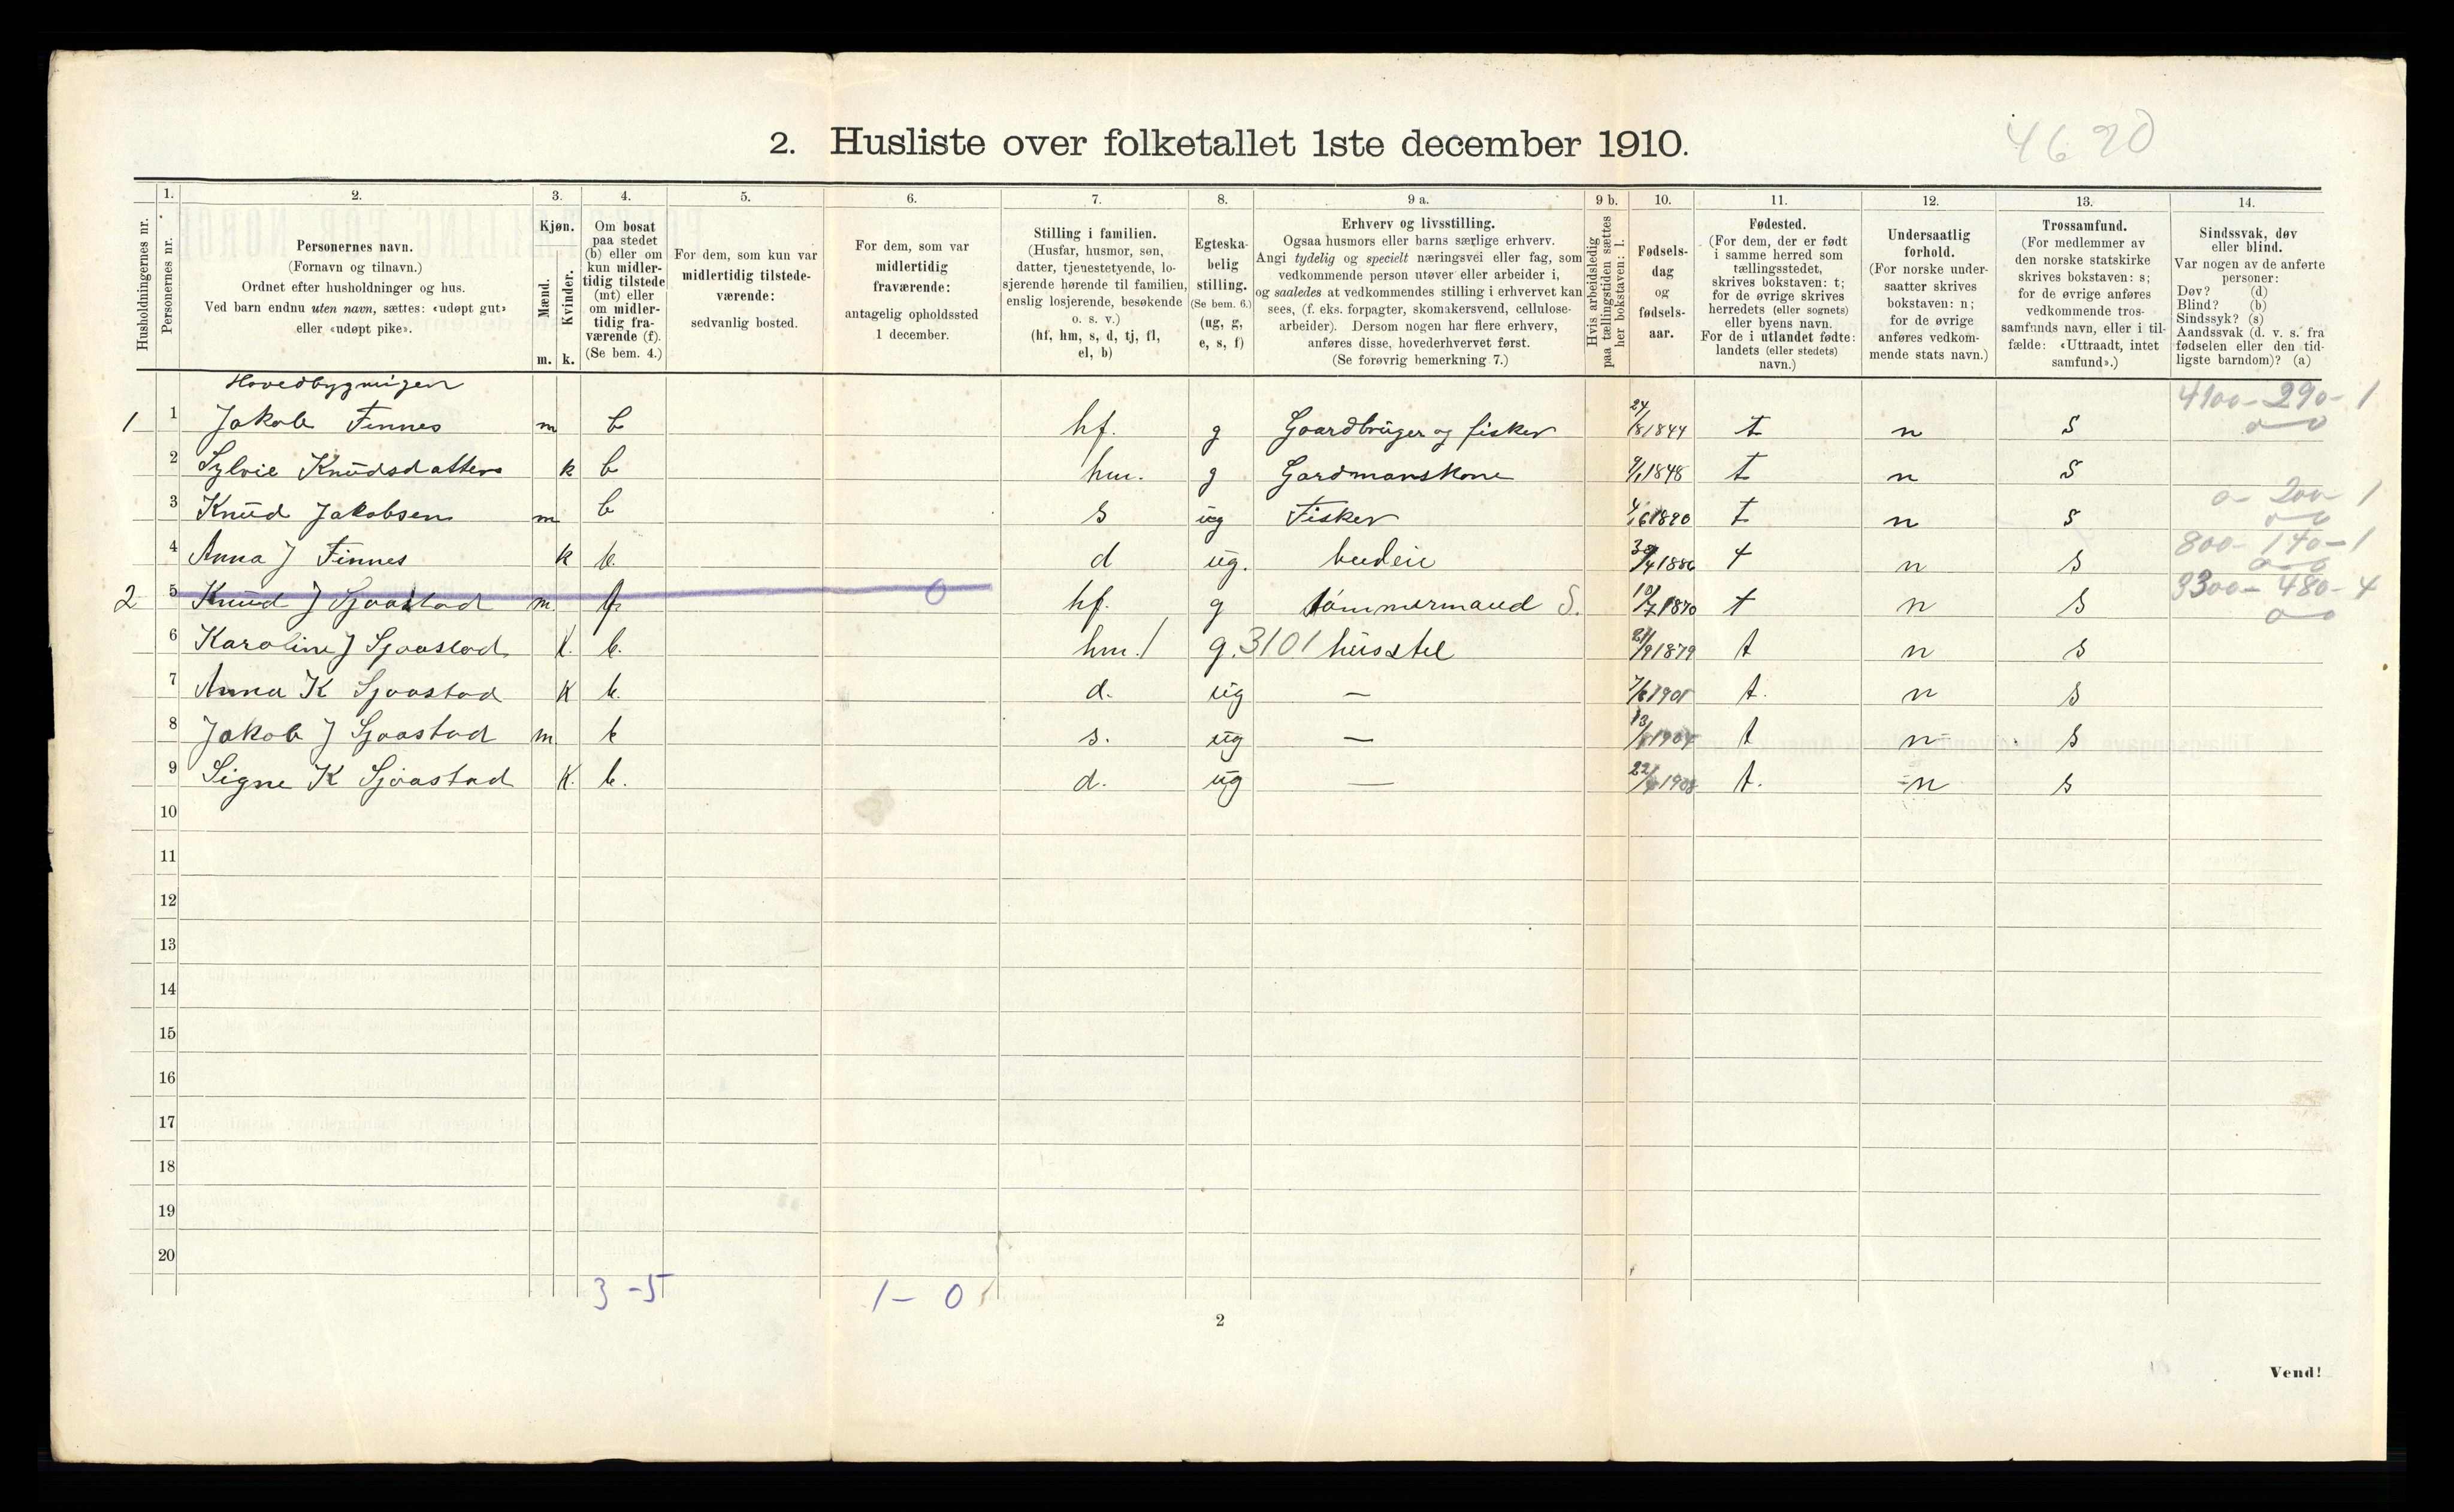 2. Husliste over folketallet 1ste december 1910.
4620
Husholdningernes nr.
1.
Personernes nr.
2.
Personernes navn.
(Fornavn og tilnavn.)
Ordnet efter husholdninger og hus.
Ved barn endnu uten navn, sættes: «udøpt gut»
eller «udøpt pike».
3.
Kjøn.
Mænd.
Kvinder.
m. k.
4.
Om bosat
paa stedet
(b) eller om
kun midler-
tidig tilstede
(mt) eller
om midler-
tidig fra-
værende (f).
(Se bem. 4.)
5.
For dem, som kun var
midlertidig tilstede-
værende:
sedvanlig bosted.
6.
For dem, som var
midlertidig
fraværende:
antagelig opholdssted
1 december.
7.
Stilling i familien.
(Husfar, husmor, søn,
datter, tjenestetyende, lo-
sjerende hørende til familien,
enslig losjerende, besøkende
o. s. v.)
(hf, hm, s, d, tj, fl,
el, b)
8.
Egteska-
belig
stilling.
(Se bem. 6.)
(ug, g,
e, s, f)
9 a.
Erhverv og livsstilling.
Ogsaa husmors eller barns særlige erhverv.
Angi tydelig og specielt næringsvei eller fag, som
vedkommende person utøver eller arbeider i,
og saaledes at vedkommendes stilling i erhvervet kan
sees, (f. eks. forpagter, skomakersvend, cellulose-
arbeider). Dersom nogen har flere erhverv,
anføres disse, hovederhvervet først.
(Se forøvrig bemerkning 7.)
9 b.
Hvis arbeidsledig
paa tællingstiden sættes
her bokstaven: l.
10.
Fødsels-
dag
og
fødsels-
aar.
11.
Fødested.
(For dem, der er født
i samme herred som
tællingsstedet,
skrives bokstaven: t;
for de øvrige skrives
herredets (eller sognets)
eller byens navn.
For de i utlandet fødte:
landets (eller stedets)
navn.)
12.
Undersaatlig
forhold.
(For norske under-
saatter skrives
bokstaven: n;
for de øvrige
anføres vedkom-
mende stats navn.)
13.
Trossamfund.
(For medlemmer av
den norske statskirke
skrives bokstaven: s;
for de øvrige anføres
vedkommende tros-
samfunds navn, eller i til-
fælde: «Uttraadt, intet
samfund».)
14.
Sindssvak, døv
eller blind.
Var nogen av de anførte
personer:
Døv? (d)
Blind? (b)
Sindssyk? (s)
Aandssvak (d. v. s. fra
fødselen eller den tid-
ligste barndom)? (a)
Hovedbygningen
4100-290-1
1 1 Jakob Finnes m b hf. g Gaardbruger og fisker 24/8 1844 t n s
2 Sylvie Knudsdatter k b hm. g Gardmanskone 1848 t n s
0-200-1
3 Knud Jakobsen m b s ug Fisker 1890 t n s
800-170-1
4 Anna J Finnes k b. d ug. budeie 1886 t n s
3300-480-4
2 5 Knud J Sjaastad m. f. 0 hf. g tømmermand S. 10/7 1870 t n s
6 Karoline J Sjaastad k. b. hm. g. 3101 husstel 21/9 1879 t n s
7 Anna K Sjaastad K b. d. ug — t. n s
8 Jakob J Sjaastad m b s. ug — 1904 t n s
9 Signe K Sjaastad K. b. d. ug — 1908 t. n s
10
11
12
13
14
15
16
17
18
19
20
3-5 1-0
2
Vend!